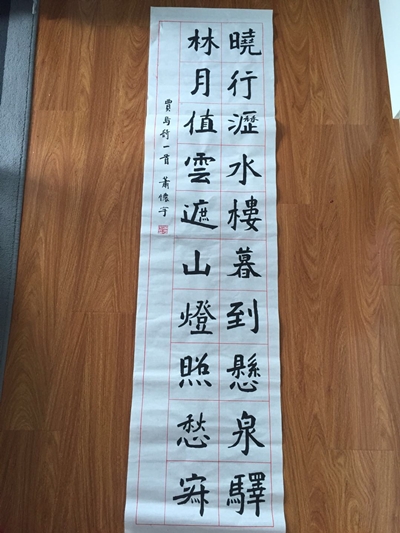 曉行瀝水樓暮到懸泉驛
林月值雲遮山燈照愁寂
賈島詩一首 蕭